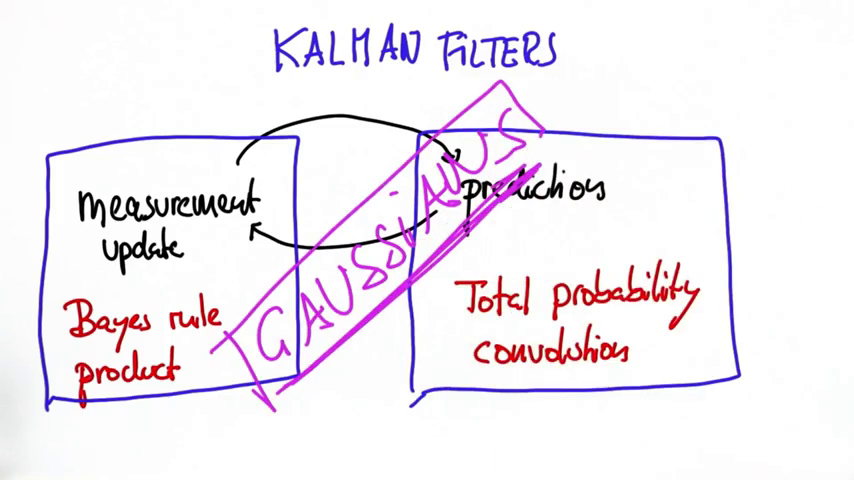 KALMAN FILTERS
measurement
update
Bayes rule
product
GAUSSIANS
prediction
Total probability
convolution